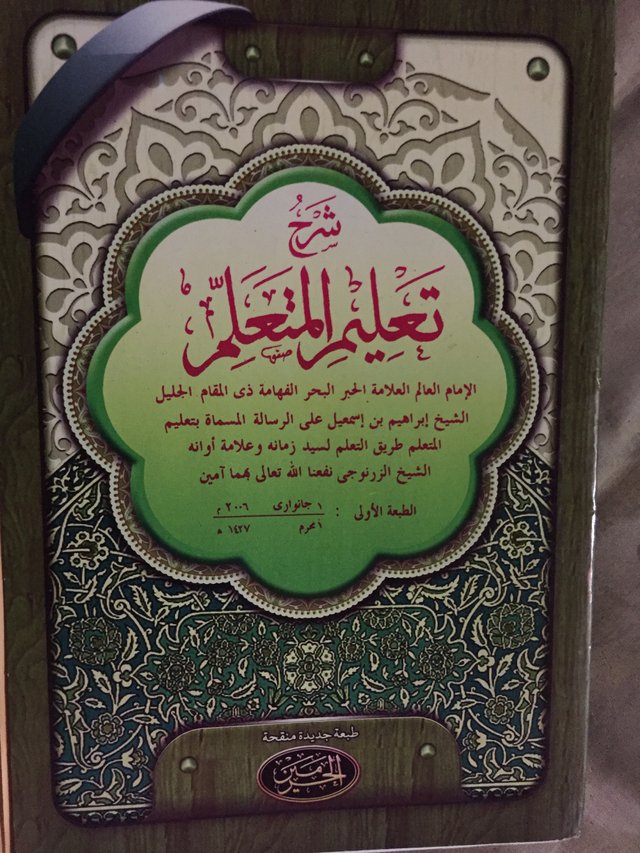 شَرْحُ
تَعْلِيمِ المُتَعَلِّمِ
صنفها
الإمام العالم العلامة الحبر البحر الفهامة ذى المقام الجليل
الشيخ إبراهيم بن إسمعيل على الرسالة المسماة بتعليم
المتعلم طريق التعلم لسيد زمانه وعلامة أوانه
الشيخ الزرنوجى نفعنا الله تعالى بهما آمين
الطبعة الأولى : ١ جانوارى ٢٠٠٦ م
١ محرم ١٤٢٧ ه
طبعة جديدة منقحة
الحرمين